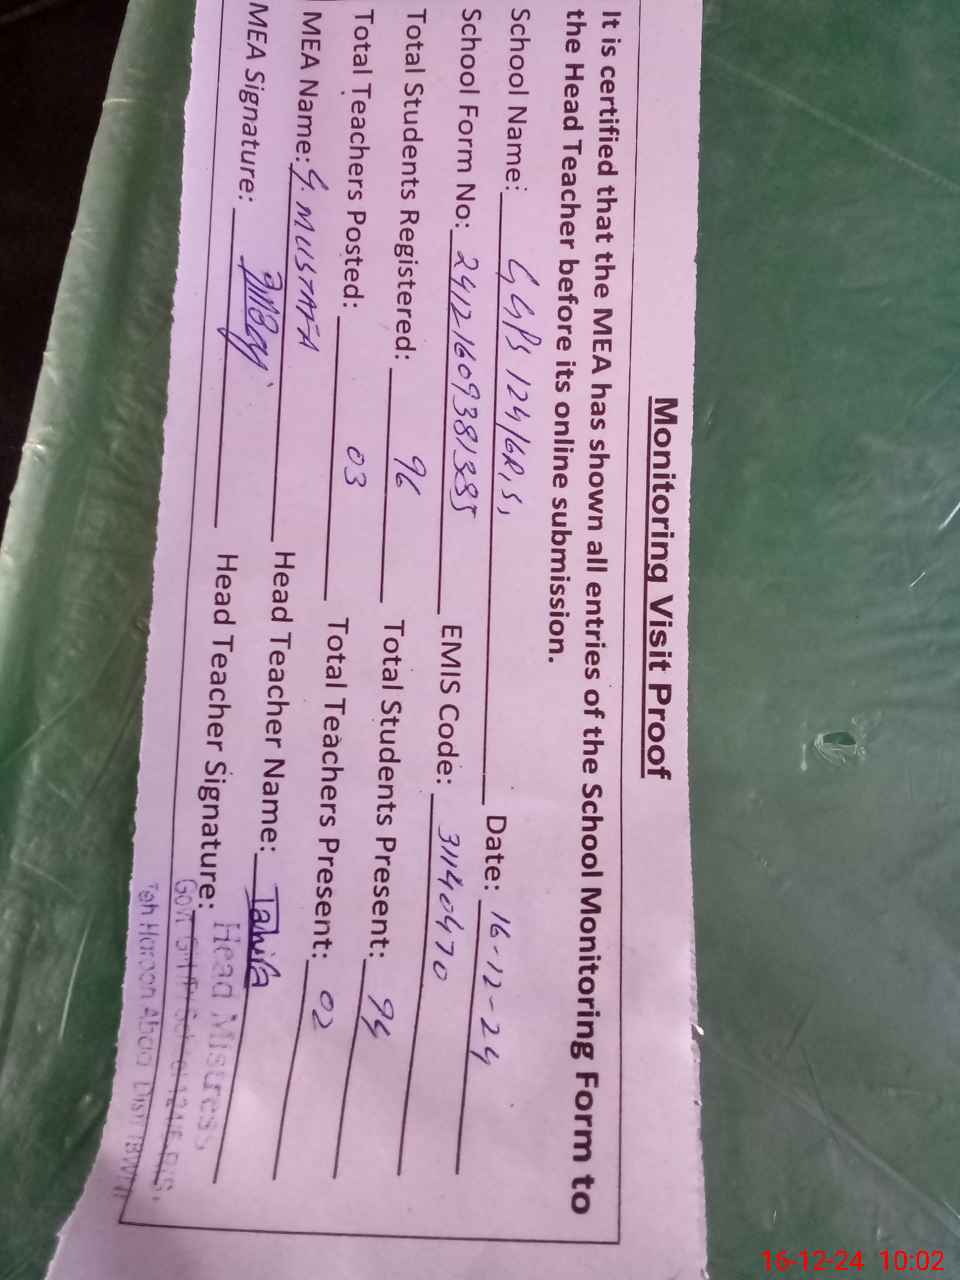 Monitoring Visit Proof
It is certified that the MEA has shown all entries of the School Monitoring Form to
the Head Teacher before its online submission.
School Name: GGPS 124/6R,S, Date: 16-12-24
School Form No: 24121609381385 EMIS Code: 31140470
Total Students Registered: 96 Total Students Present: 94
Total Teachers Posted: 03 Total Teachers Present: 02
MEA Name: G. MUSTAFA Head Teacher Name: Tahira
MEA Signature: Head Teacher Signature:
Head Mistress
Govt. School 124/6
Teh Haroon Abad Distt BWN
16-12-24 10:02